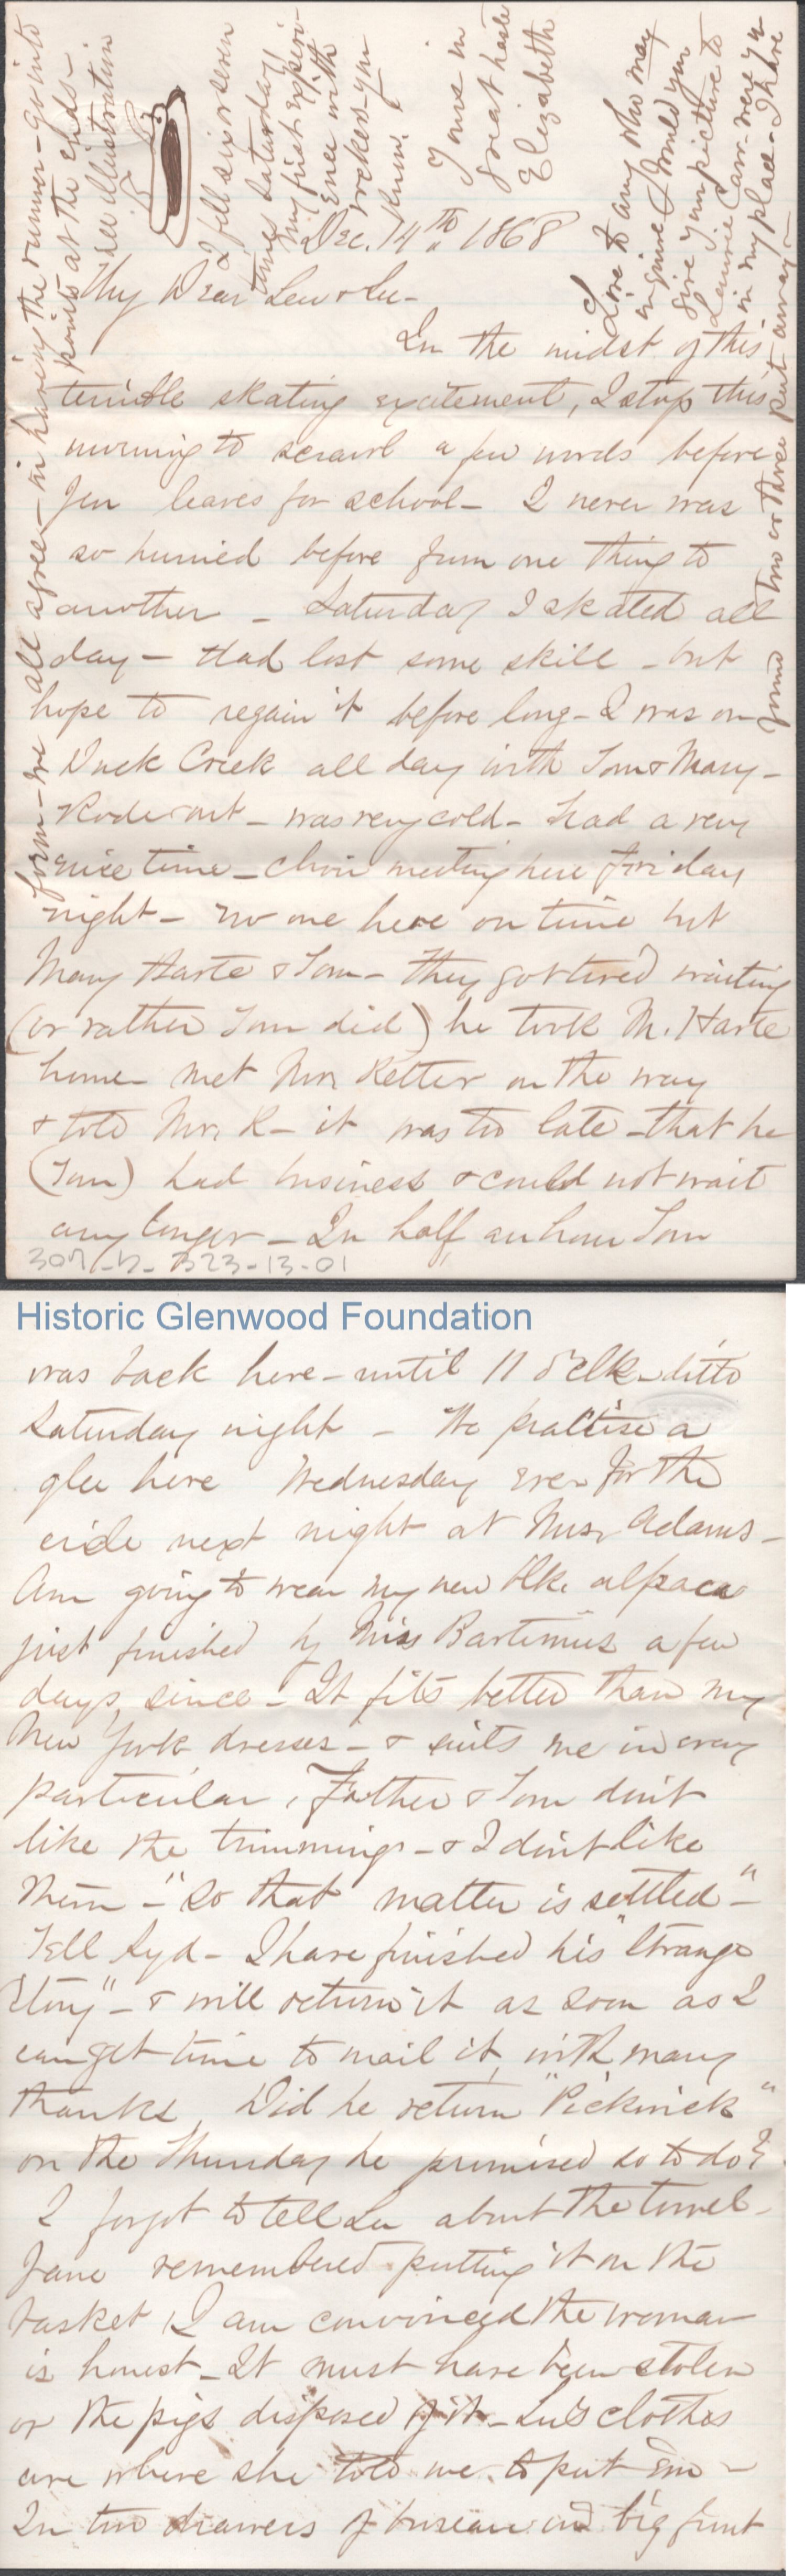 Dec. 14th 1868
My Dear Lew & Lu -
In the midst of this
terrible skating excitement, I stop this
morning to scrawl a few words before
Jen leaves for school - I never was
so hurried before from one thing to
another - Saturday I skated all
day - Had lost some skill - but
hope to regain it before long - I was on
Duck Creek all day with Tom & Mary -
Rode out - was very cold - had a very
nice time - choir meeting here Friday
night - no one here on time but
Mary Harte & Tom - they got tired waiting
(or rather Tom did) he took M. Harte
home - met Mrs Retter on the way
& told Mrs. R - it was too late - that he
(Tom) had business & could not wait
any longer - In half an hour Tom
307-b-B23-13-01
Historic Glenwood Foundation
was back here - until 11 o'clk - ditto
Saturday night - We practise a
glee here Wednesday eve - for the
next night at Mrs. Adams -
Am going to wear my new blk. alpaca
just finished by Miss Bartimus a few
days since - It fits better than my
New York dresses - & suits me in every
particular, Father & Tom don't
like the trimmings - & I don't like
them - "So that matter is settled" -
Tell Syd - I have finished his "Strange
Story" - & will return it as soon as I
can get time to mail it, with many
thanks, Did he return "Pickwick"
on the Thursday he promised so to do?
I forgot to tell Lu about the towel -
Jane remembered putting it on the
basket, I am convinced the woman
is honest - It must have been stolen
or the pigs disposed of it - Lu's clothes
are where she told me to put 'em -
In two drawers of bureau in big front
form - we all agree - in having the runner - go into
points at the ends -
see illustration
I fell six or seven
times Saturday,
my first experi-
ence with
rockers - you
know.
Yours in
great haste
Elizabeth
Love to any who may
inquire I would you
give your picture to
Laurie Carr - were you
in my place - I have
found two or three put away -